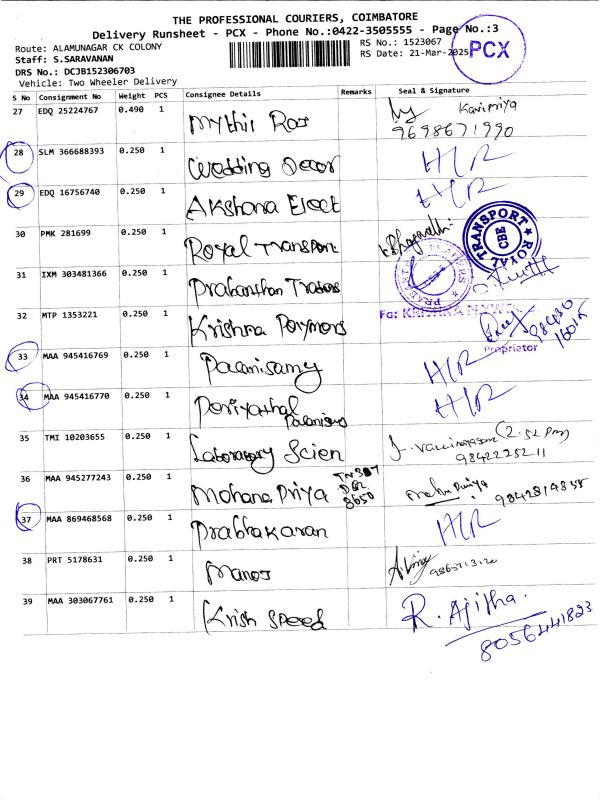 THE PROFESSIONAL COURIERS, COIMBATORE
Delivery Runsheet - PCX - Phone No.:0422-3505555 - Page No.:3
Route: ALAMUNAGAR CK COLONY
RS No.: 1523067
PCX
Staff: S.SARAVANAN
RS Date: 21-Mar-2025
DRS No.: DCJB152306703
Vehicle: Two Wheeler Delivery
S No Consignment No Weight PCS Consignee Details Remarks Seal & Signature
27 EDQ 25224767 0.490 1 Mythil Raj Kavipriya
9698671990
28 SLM 366688393 0.250 1 Wedding Decor H/R
29 EDQ 16756740 0.250 1 Akshana Elect H/R
30 PMK 281699 0.250 1 Royal Transport
ROYAL TRANSPORT CBE
31 IXM 303481366 0.250 1 Prabanthan Traders
32 MTP 1353221 0.250 1 Krishna Polymors
For: KRISHNA
98430
16015
Proprietor
33 MAA 945416769 0.250 1 Palanisamy H/R
34 MAA 945416770 0.250 1 Periyathal H/R
35 TMI 10203655 0.250 1 Laboratory Scien (2.52 pm)
9842225211
36 MAA 945277243 0.250 1 Mohana Priya 9842814838
8650
37 MAA 869468568 0.250 1 Prabhakaran H/R
38 PRT 5178631 0.250 1 Manoj
39 MAA 303067761 0.250 1 Krish Speed R. Ajitha.
8056441823